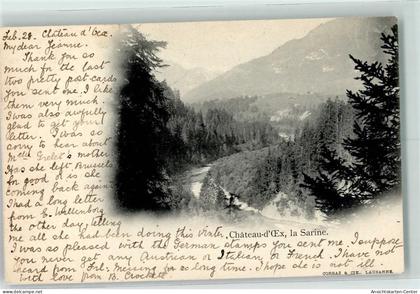 Feb. 28. Château d'Œx
My dear Jeanne:
Thank you so
much for the last
two pretty post-cards
you sent me. I like
them very much.
I was also awfully
glad to get your
letter. I was so
sorry to hear about
Mlle Grelet's mother
Has she left Brussels
for good or is she
coming back again
I had a long letter
from G. Wellenberg
the other day telling
me all she had been doing this winter.
I was so pleased with the German stamps you sent me. I suppose
you never get any Austrian or Italian, or French. I have not
heard from Frl. Messing for so long time. I hope she is not ill
with love from B. Crockett.
Château-d'Œx, la Sarine.
CORBAZ & CIE, LAUSANNE.
www.Ansichtskarten-Center.de